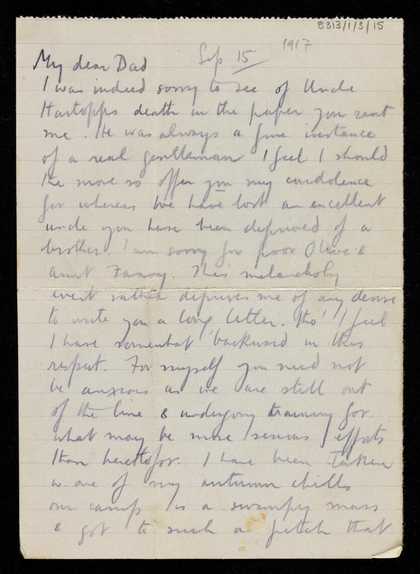 8313/1/3/15
Sep 15 1917
My dear Dad
I was indeed sorry to see of Uncle
Hartopps death in the paper you sent
me. He was always a fine instance
of a real gentleman I feel I should
the more so offer you my condolence
for whereas we have lost an excellent
uncle you have been deprived of a
brother. I am sorry for poor Olive &
aunt Fanny. This melancholy
event rather deprives me of any desire
to write you a long letter. Tho' I feel
I have somewhat backslid in this
respect. For myself you need not
be anxious as we are still out
of the line & undergoing training for
what may be more serious efforts
than heretofor. I have been taken
w one of my autumn chills
our camp is a swampy mass
& got to such a pitch that